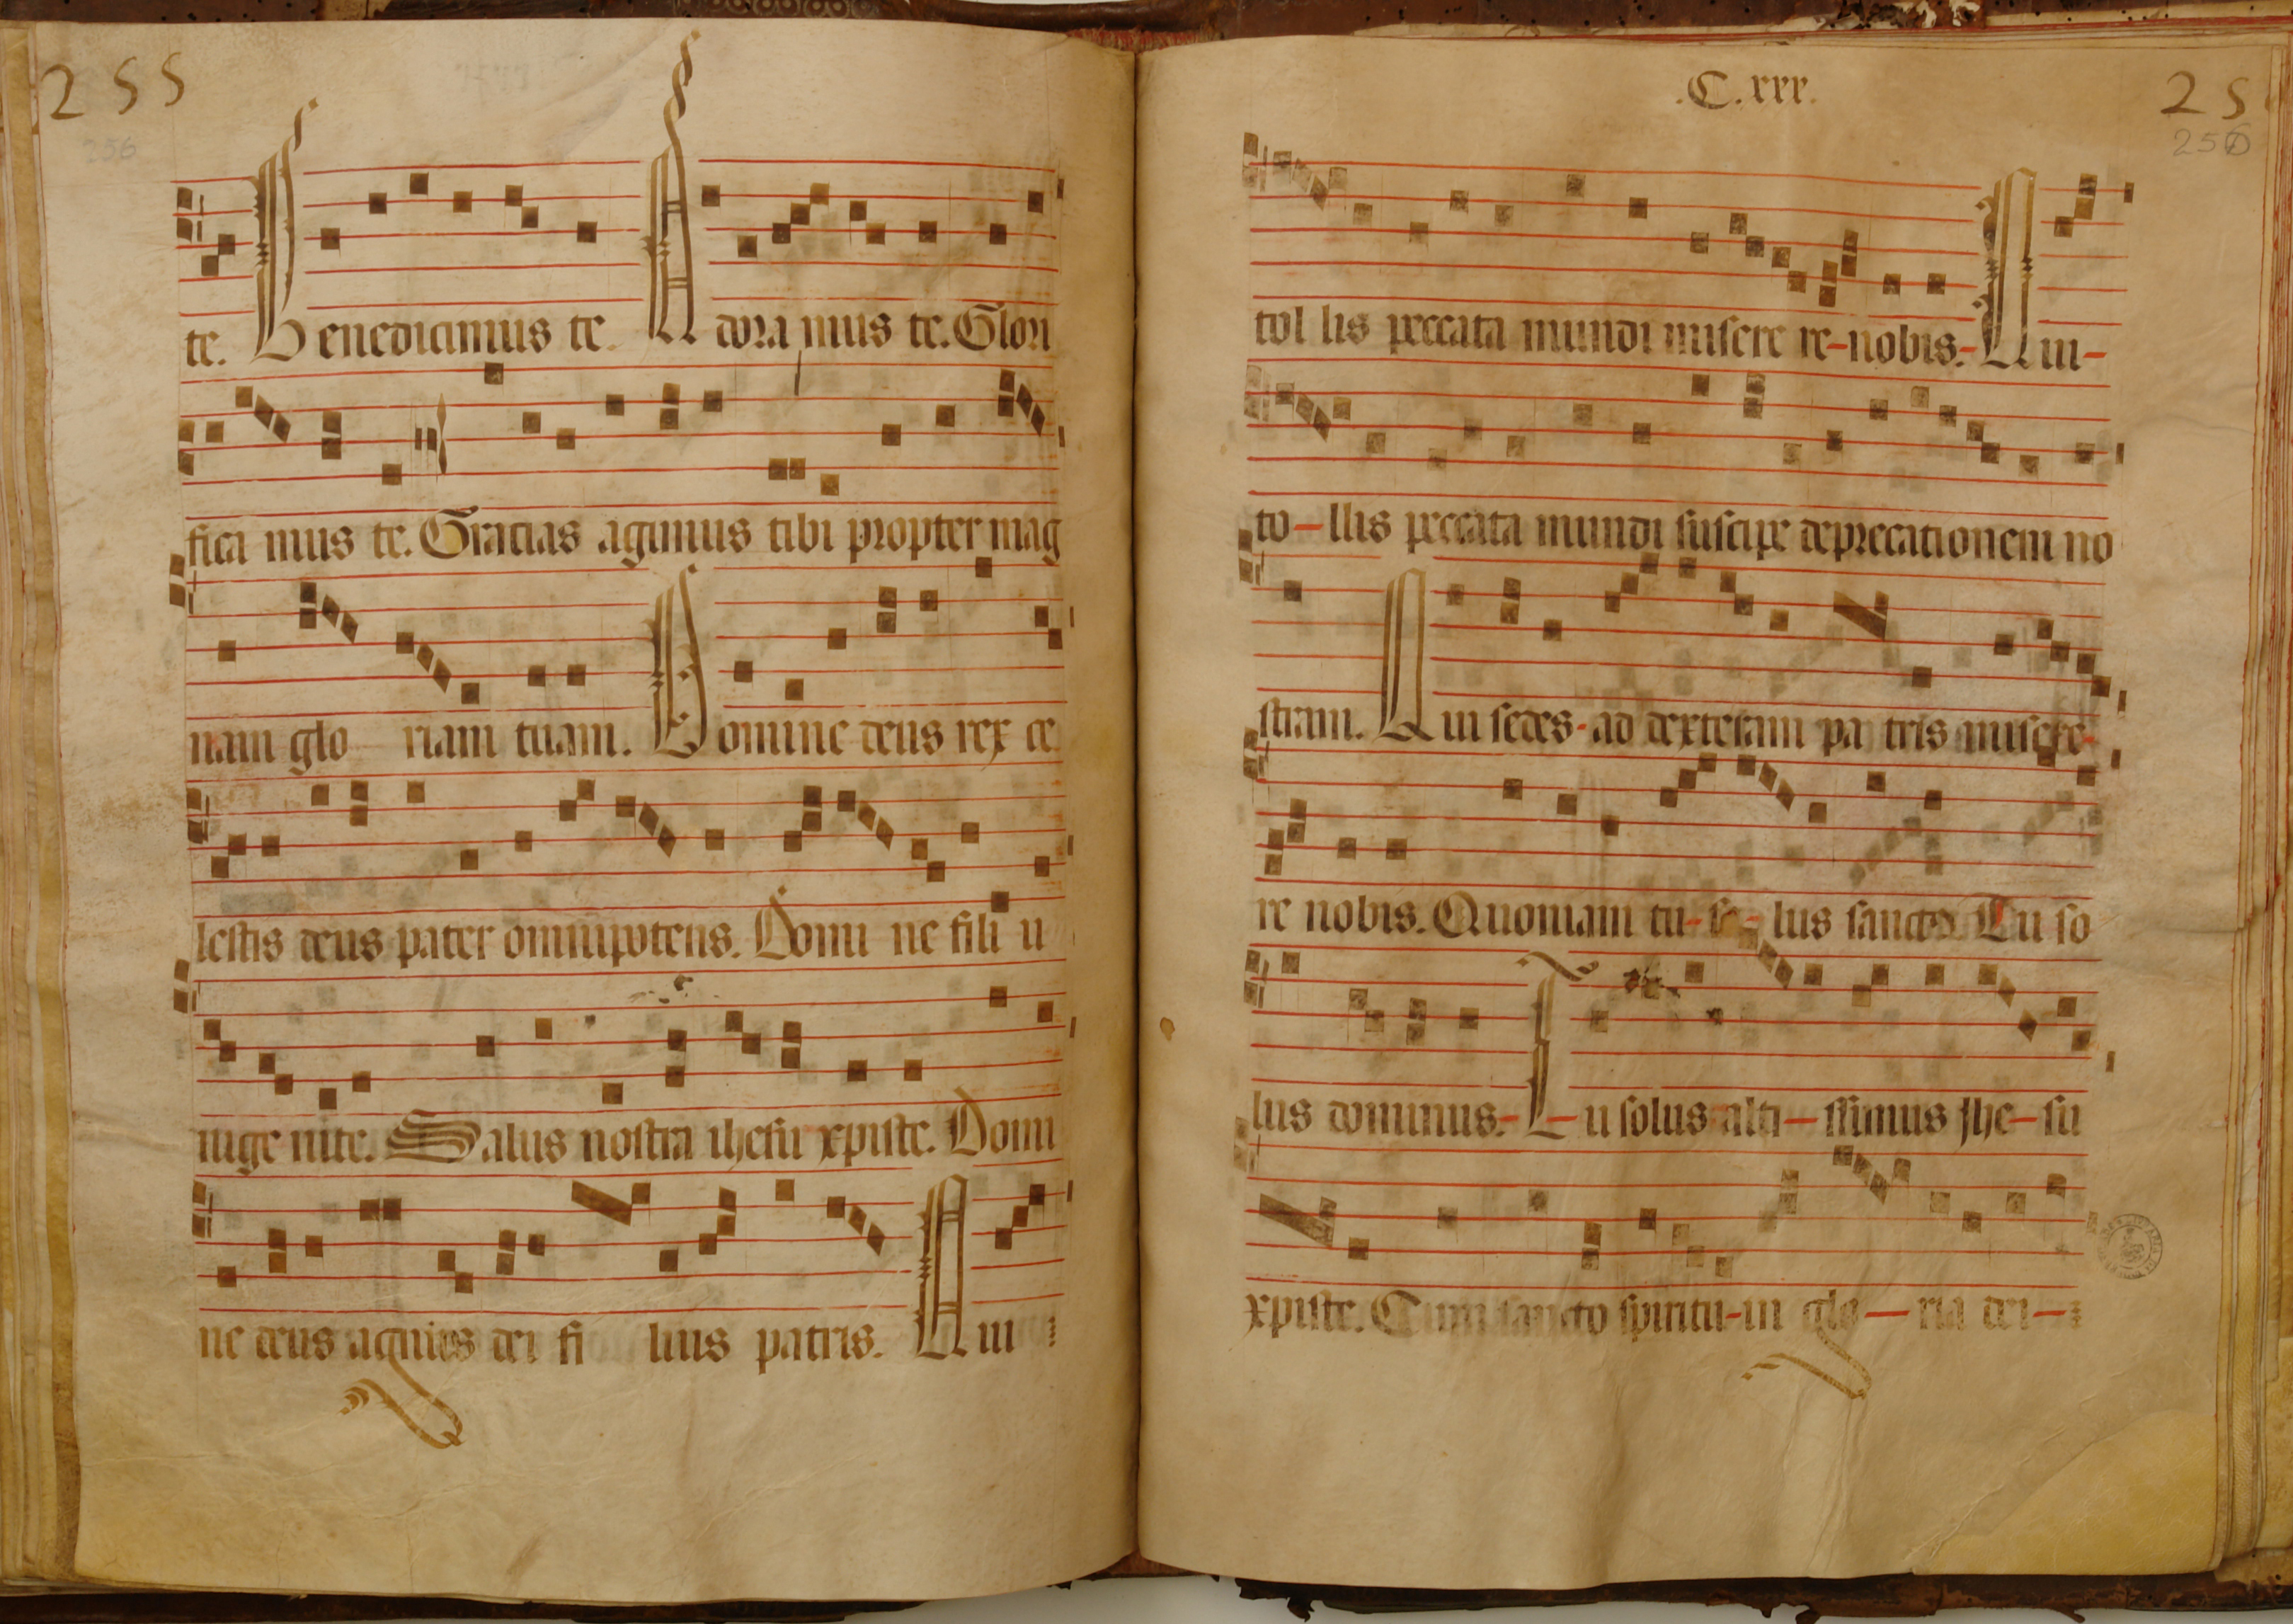 255
256
te. Benedicimus te. Adora mus te. Glori
fica mus te. Gracias agimus tibi propter mag
nam glo riam tuam. Domine deus rex ce
lestis deus pater omnipotens. Domi ne fili u
nige nite. Salus nostra ihesu xpiste. Domi
ne deus agnus dei fi lius patris. Qui
.C.xxx.
25
256
tol lis peccata mundi misere re-nobis.-Qui-
to-llis peccata mundi suscipe deprecationem no
stram. Qui sedes-ad dexteram pa tris misere-
re nobis. Quoniam tu-so-lus sanctus. Tu so
lus dominus.-Tu solus alti-ssimus jhe-su
xpiste. Cum sancto spiritu-in glo-ria dei-